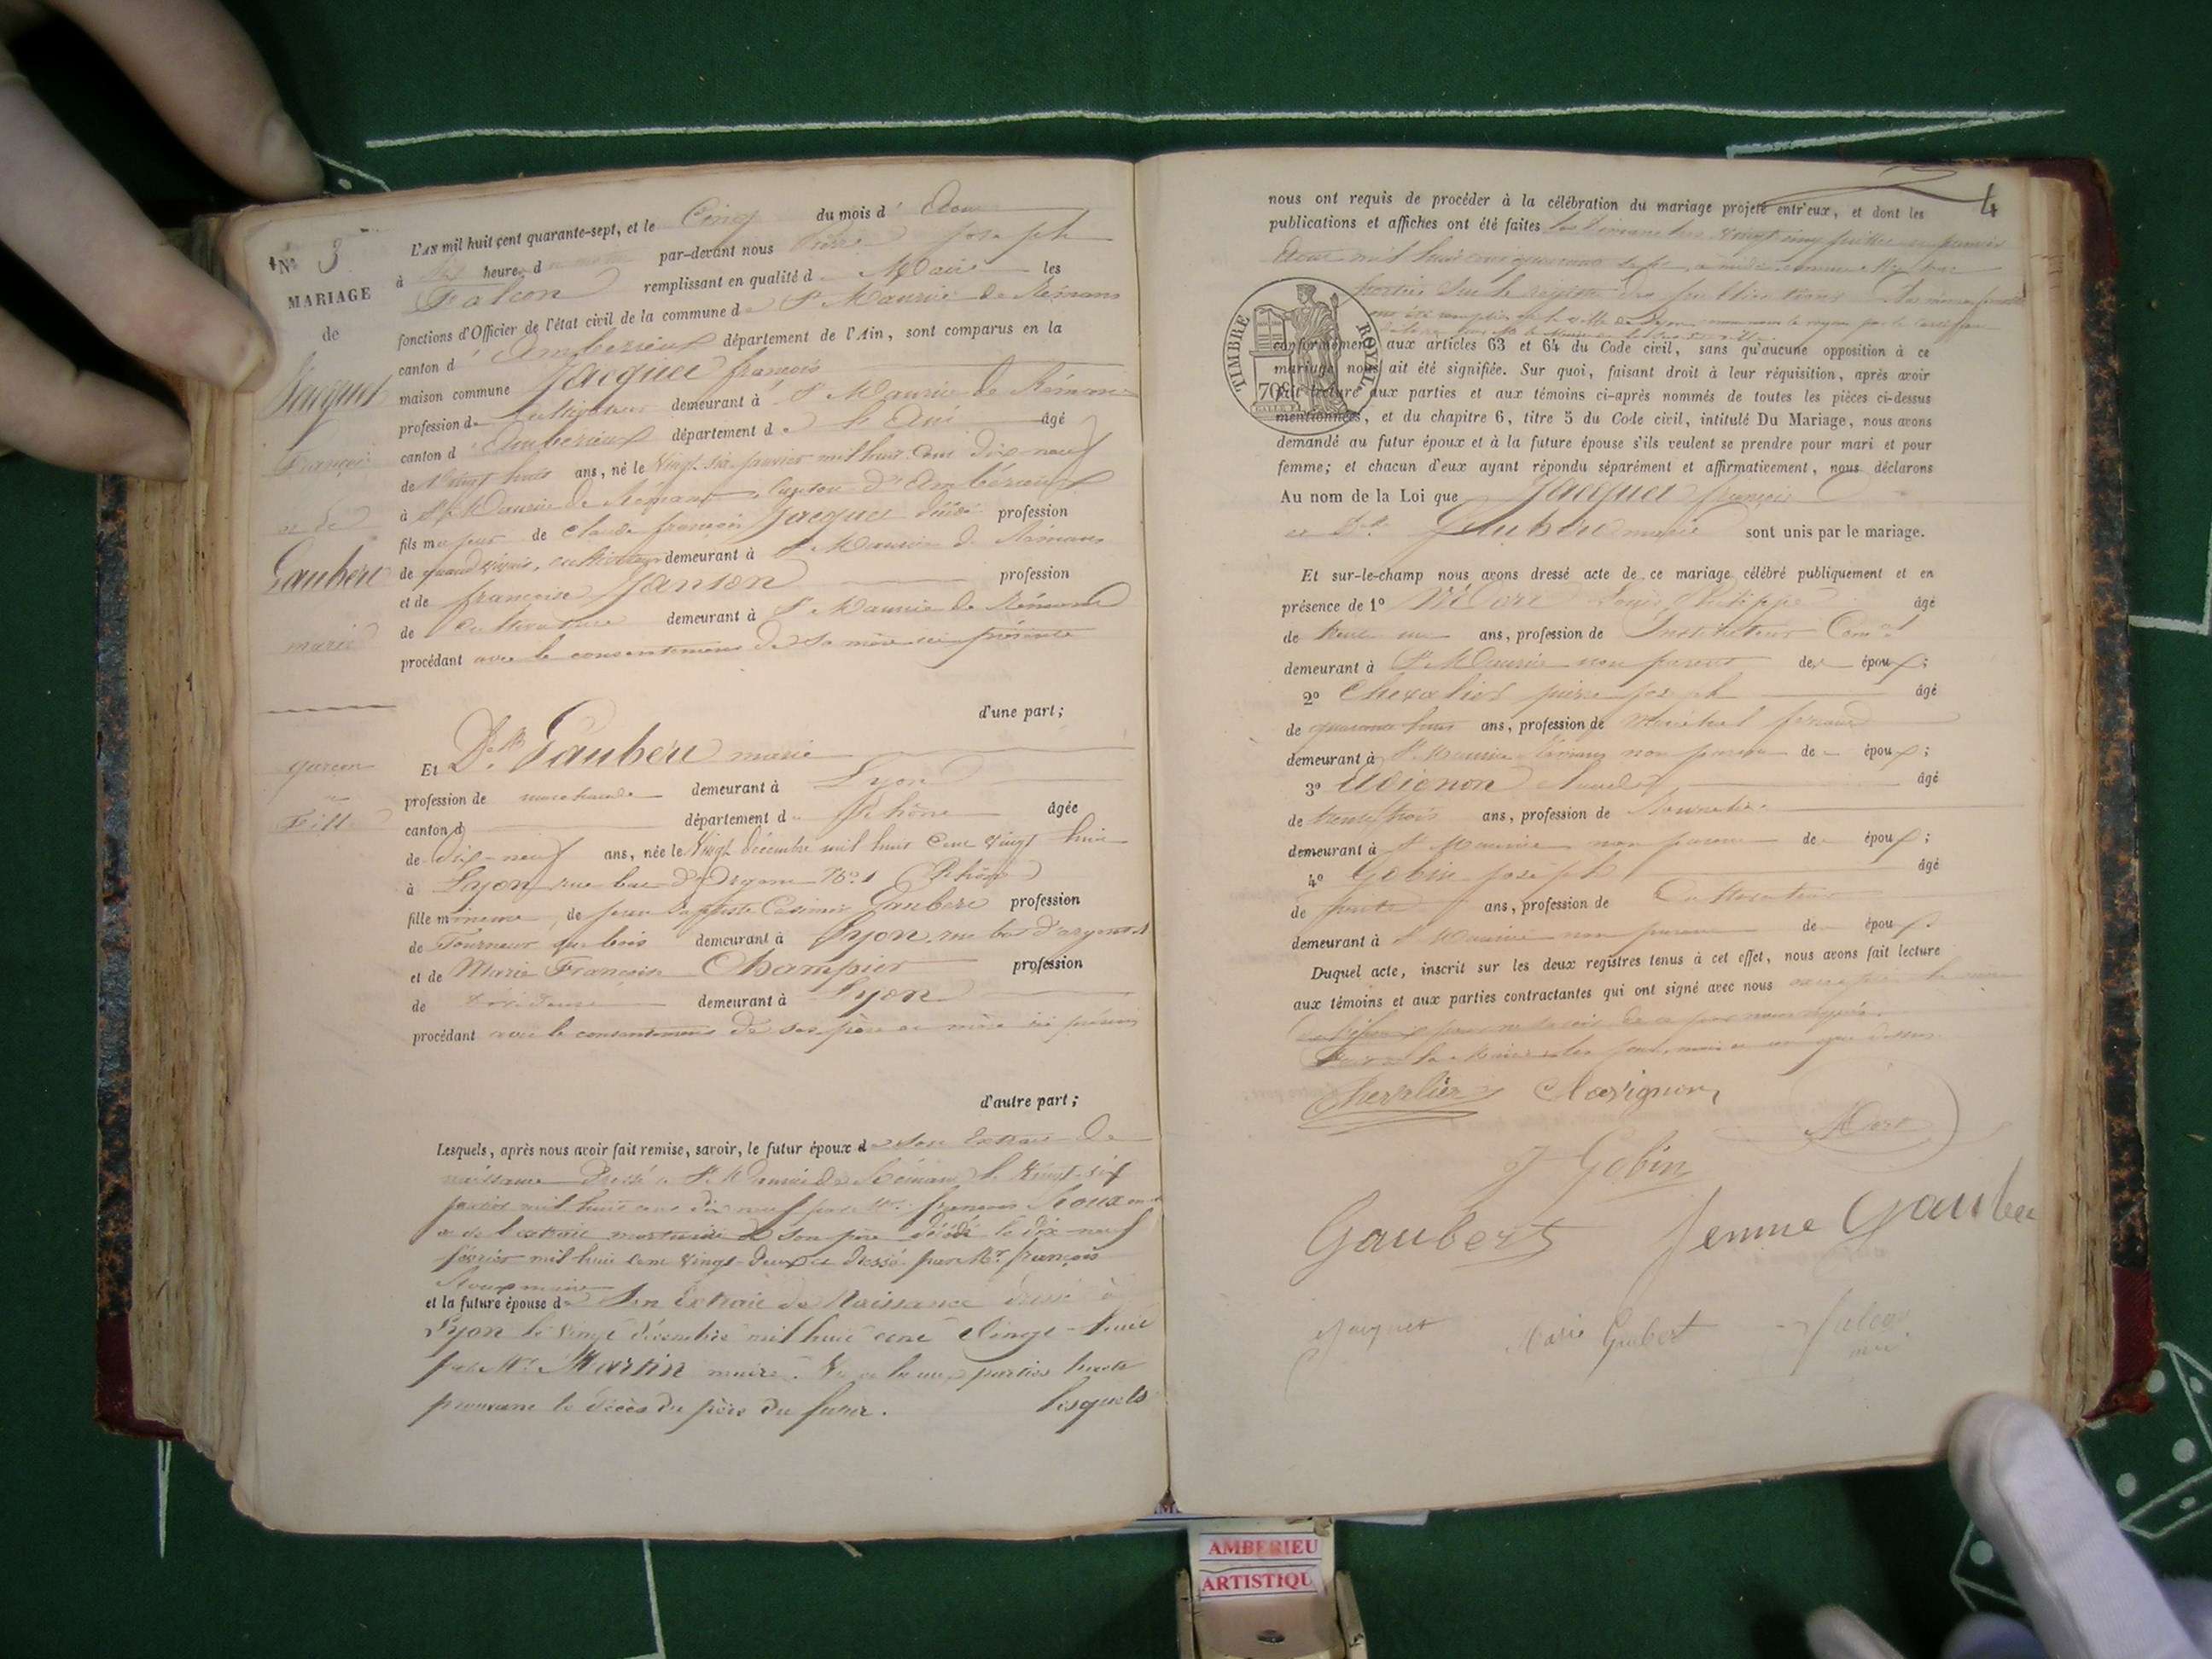 No 3
MARIAGE
de
Jacquet
François
et de
Gaubert
marie
garçon
Fille
L'AN mil huit cent quarante-sept, et le Cinq du mois d' Aout
à heure d par-devant nous Pierre Joseph
Falcon remplissant en qualité de Maire les
fonctions d'Officier de l'état civil de la commune de St Maurice de Rémens
canton d' Ambérieux département de l'Ain, sont comparus en la
maison commune Jacquet françois
profession de cultivateur demeurant à St Maurice de Rémens
canton d' Ambérieux département de l'Ain âgé
de Vingt huit ans, né le Vingt-six janvier mil huit cent dix-neuf
à St Maurice de Rémens, canton d'Ambérieux
fils majeur de Claude françois Jacquet décédé profession
de quand vivait, cultivateur demeurant à St Maurice de Rémens
et de françoise Janton profession
de Cultivatrice demeurant à St Maurice de Rémens
procédant avec le consentement de sa mère ici présente
d'une part;
Et Dlle Gaubert marie
profession de marchande demeurant à Lyon
canton d département du Rhône âgée
de dix-neuf ans, née le Vingt décembre mil huit cent vingt huit
à Lyon, rue bas d'Argent No 1 (Rhône)
fille mineure, de jean baptiste Casimir Gaubert profession
de Tourneur sur bois demeurant à Lyon, rue bas d'argent 1
et de Marie Françoise Champier profession
de Dévideuse demeurant à Lyon
procédant avec le consentement de ses père et mère ici présens
d'autre part;
Lesquels, après nous avoir fait remise, savoir, le futur époux de son Extrait de
naissance Dressé à St Maurice de Rémens le Vingt-six
janvier mil huit cent dix neuf par Mr françois Roux
et de l'extrait mortuaire de son père décédé le dix-neuf
février mil huit cent vingt-deux et dressé par Mr françois
Roux maire
et la future épouse de Son Extrait de Naissance dressé à
Lyon le vingt décembre mil huit cent Vingt-huit
par Mr Martin maire. parties
prouvant le décès du père du futur. lesquels
4
nous ont requis de procéder à la célébration du mariage projeté entr'eux, et dont les
publications et affiches ont été faites les Dimanches vingt cinq juillet et premier
Aout mil huit cent quarante sept, à midi,
portées sur le registre des publications
conformément aux articles 63 et 64 du Code civil, sans qu'aucune opposition à ce
mariage nous ait été signifiée. Sur quoi, faisant droit à leur réquisition, après avoir
fait lecture aux parties et aux témoins ci-après nommés de toutes les pièces ci-dessus
mentionnées, et du chapitre 6, titre 5 du Code civil, intitulé Du Mariage, nous avons
demandé au futur époux et à la future épouse s'ils veulent se prendre pour mari et pour
femme; et chacun d'eux ayant répondu séparément et affirmativement, nous déclarons
Au nom de la Loi que Jacquet françois
et Dlle Gaubert marie sont unis par le mariage.
TIMBRE ROYAL
70c
Et sur-le-champ nous avons dressé acte de ce mariage célébré publiquement et en
présence de 1º Louis Philippe âgé
de trente un ans, profession de Instituteur Comal
demeurant à St Maurice non parent des époux;
2º Chevalier pierre joseph âgé
de quarante huit ans, profession de Maréchal ferrand
demeurant à St Maurice Rémens non parent des époux;
3º Avignon Claude âgé
de trente trois ans, profession de
demeurant à St Maurice non parent des époux;
4º Gobin joseph âgé
de trente ans, profession de Cultivateur
demeurant à St Maurice non parent des époux.
Duquel acte, inscrit sur les deux registres tenus à cet effet, nous avons fait lecture
aux témoins et aux parties contractantes qui ont signé avec nous
pour ne savoir de ce par nous requis.
Fait à St Maurice les jour, mois et an que dessus.
Chevalier Clavignon
J Gobin
Gaubert femme Gaubert
Jacquet Marie Gaubert Falcon
AMBERIEU
ARTISTIQU